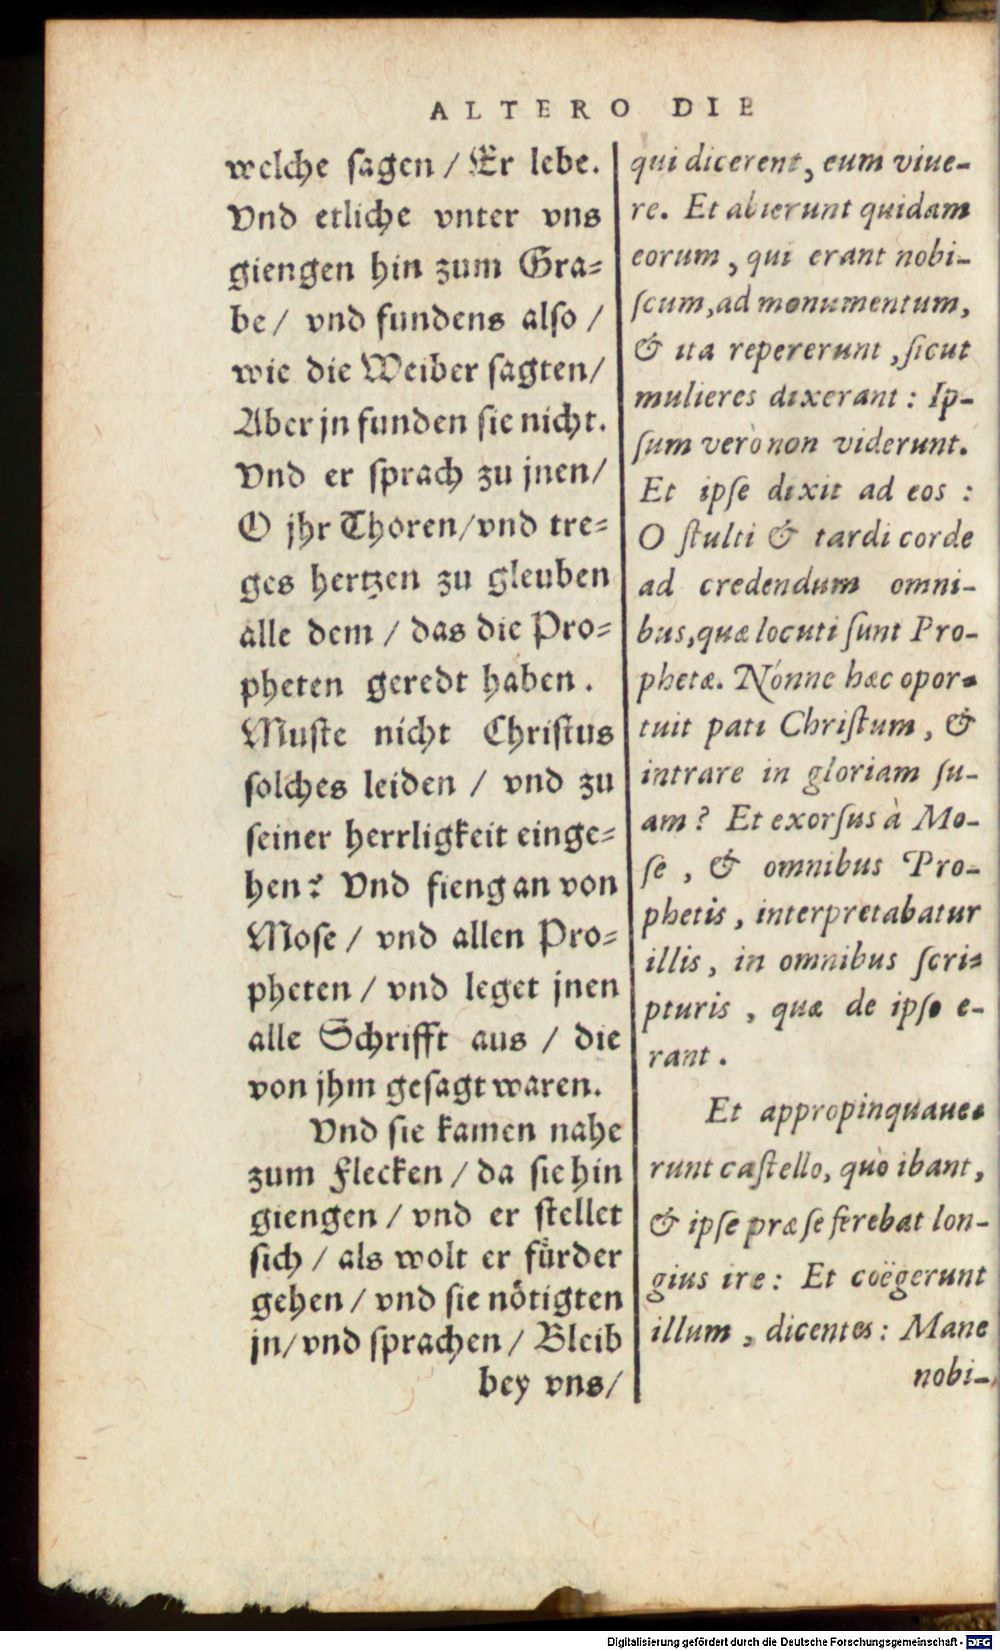 ALTERO DIE
welche ſagen / Er lebe.
Vnd etliche vnter vns
giengen hin zum Gra⸗
be / vnd fundens alſo /
wie die Weiber ſagten /
Aber jn funden ſie nicht.
Vnd er ſprach zu jnen /
O jhr Thoren / vnd tre⸗
ges hertzen zu gleuben
alle dem / das die Pro⸗
pheten geredt haben.
Muſte nicht Chriſtus
ſolches leiden / vnd zu
ſeiner herrligkeit einge⸗
hen? Vnd fieng an von
Moſe / vnd allen Pro⸗
pheten / vnd leget jnen
alle Schrifft aus / die
von jhm geſagt waren.
Vnd ſie kamen nahe
zum Flecken / da ſie hin
giengen / vnd er ſtellet
ſich / als wolt er fürder
gehen / vnd ſie nötigten
jn / vnd ſprachen / Bleib
bey vns /
qui dicerent, eum viue-
re. Et abierunt quidam
eorum, qui erant nobi-
ſcum, ad monumentum,
& ita repererunt, ſicut
mulieres dixerant: Ip-
ſum verò non viderunt.
Et ipſe dixit ad eos:
O ſtulti & tardi corde
ad credendum omni-
bus, quæ locuti ſunt Pro-
phetæ. Nónne hæc opor-
tuit pati Chriſtum, &
intrare in gloriam ſu-
am? Et exorſus à Mo-
ſe, & omnibus Pro-
phetis, interpretabatur
illis, in omnibus ſcri-
pturis, quæ de ipſo e-
rant.
Et appropinquaue-
runt caſtello, quò ibant,
& ipſe præ ſe ferebat lon-
gius ire: Et coëgerunt
illum, dicentes: Mane
nobi-
Digitalisierung gefördert durch die Deutsche Forschungsgemeinschaft - DFG